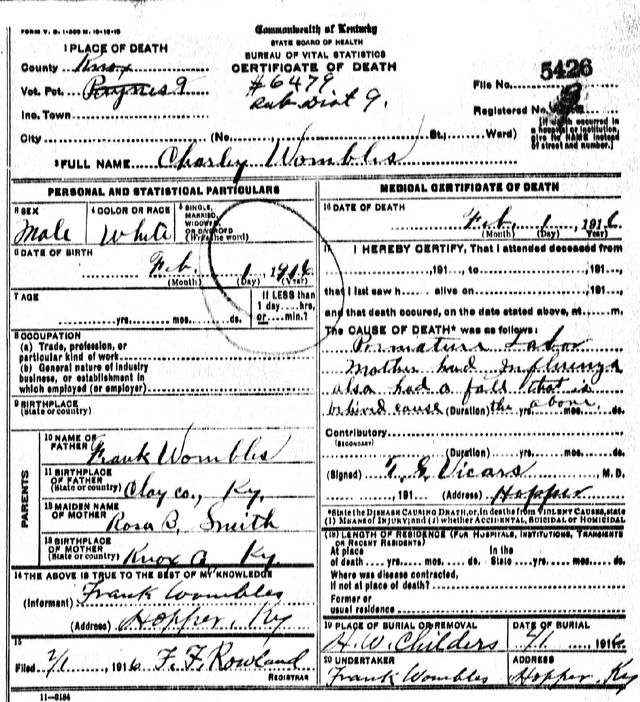 FORM V. S. 1-500 M. 10-10-10
Commonwealth of Kentucky
STATE BOARD OF HEALTH
BUREAU OF VITAL STATISTICS
CERTIFICATE OF DEATH
1 PLACE OF DEATH
County Knox
Vot. Pct. Paynes 9
Inc. Town
#6479
Sub Dist 9.
File No. 5426
Registered No.
[If death occurred in
a hospital or institution,
give its NAME instead
of street and number.]
City (No. St.; Ward)
2 FULL NAME Charley Wombles
PERSONAL AND STATISTICAL PARTICULARS
3 SEX
Male
4 COLOR OR RACE
White
5 SINGLE,
MARRIED,
WIDOWED,
OR DIVORCED
(Write the word)
6 DATE OF BIRTH
Feb. 1, 1916
(Month) (Day) (Year)
7 AGE
yrs. mos. ds.
If LESS than
1 day....hrs.
or....min.?
8 OCCUPATION
(a) Trade, profession, or
particular kind of work
(b) General nature of industry
business, or establishment in
which employed (or employer)
9 BIRTHPLACE
(State or country)
PARENTS
10 NAME OF
FATHER Frank Wombles
11 BIRTHPLACE
OF FATHER
(State or country) Clay co., Ky.
12 MAIDEN NAME
OF MOTHER Rosa B. Smith
13 BIRTHPLACE
OF MOTHER
(State or country) Knox Co Ky.
14 THE ABOVE IS TRUE TO THE BEST OF MY KNOWLEDGE
(Informant) Frank Wombles
(Address) Hopper, Ky
15
Filed 2/1, 1916 F. F. Rowland
REGISTRAR
11-3184
MEDICAL CERTIFICATE OF DEATH
16 DATE OF DEATH
Feb. 1, 1916
(Month) (Day) (Year)
17 I HEREBY CERTIFY, That I attended deceased from
,191 to ,191
that I last saw h alive on ,191
and that death occured, on the date stated above, at m.
The CAUSE OF DEATH* was as follows:
Premature Labor
Mother had Influenza
also had a fall that is
behind cause (Duration) the above yrs. mos. ds.
Contributory
(SECONDARY)
(Duration) yrs. mos. ds.
(Signed) G. Vicars, M.D.
, 191 (Address) Hopper
*State the DISEASE CAUSING DEATH, or, in deaths from VIOLENT CAUSES, state
(1) MEANS of INJURY; and (2) whether ACCIDENTAL, SUICIDAL or HOMICIDAL
(18) LENGTH OF RESIDENCE (FOR HOSPITALS, INSTITUTIONS, TRANSIENTS
OR RECENT RESIDENTS)
At place of death yrs. mos. ds. In the State yrs. mos. ds.
Where was disease contracted,
if not at place of death?
Former or
usual residence
19 PLACE OF BURIAL OR REMOVAL
H. W. Childers
DATE OF BURIAL
2/1 1916
20 UNDERTAKER
Frank Wombles
ADDRESS
Hopper, Ky